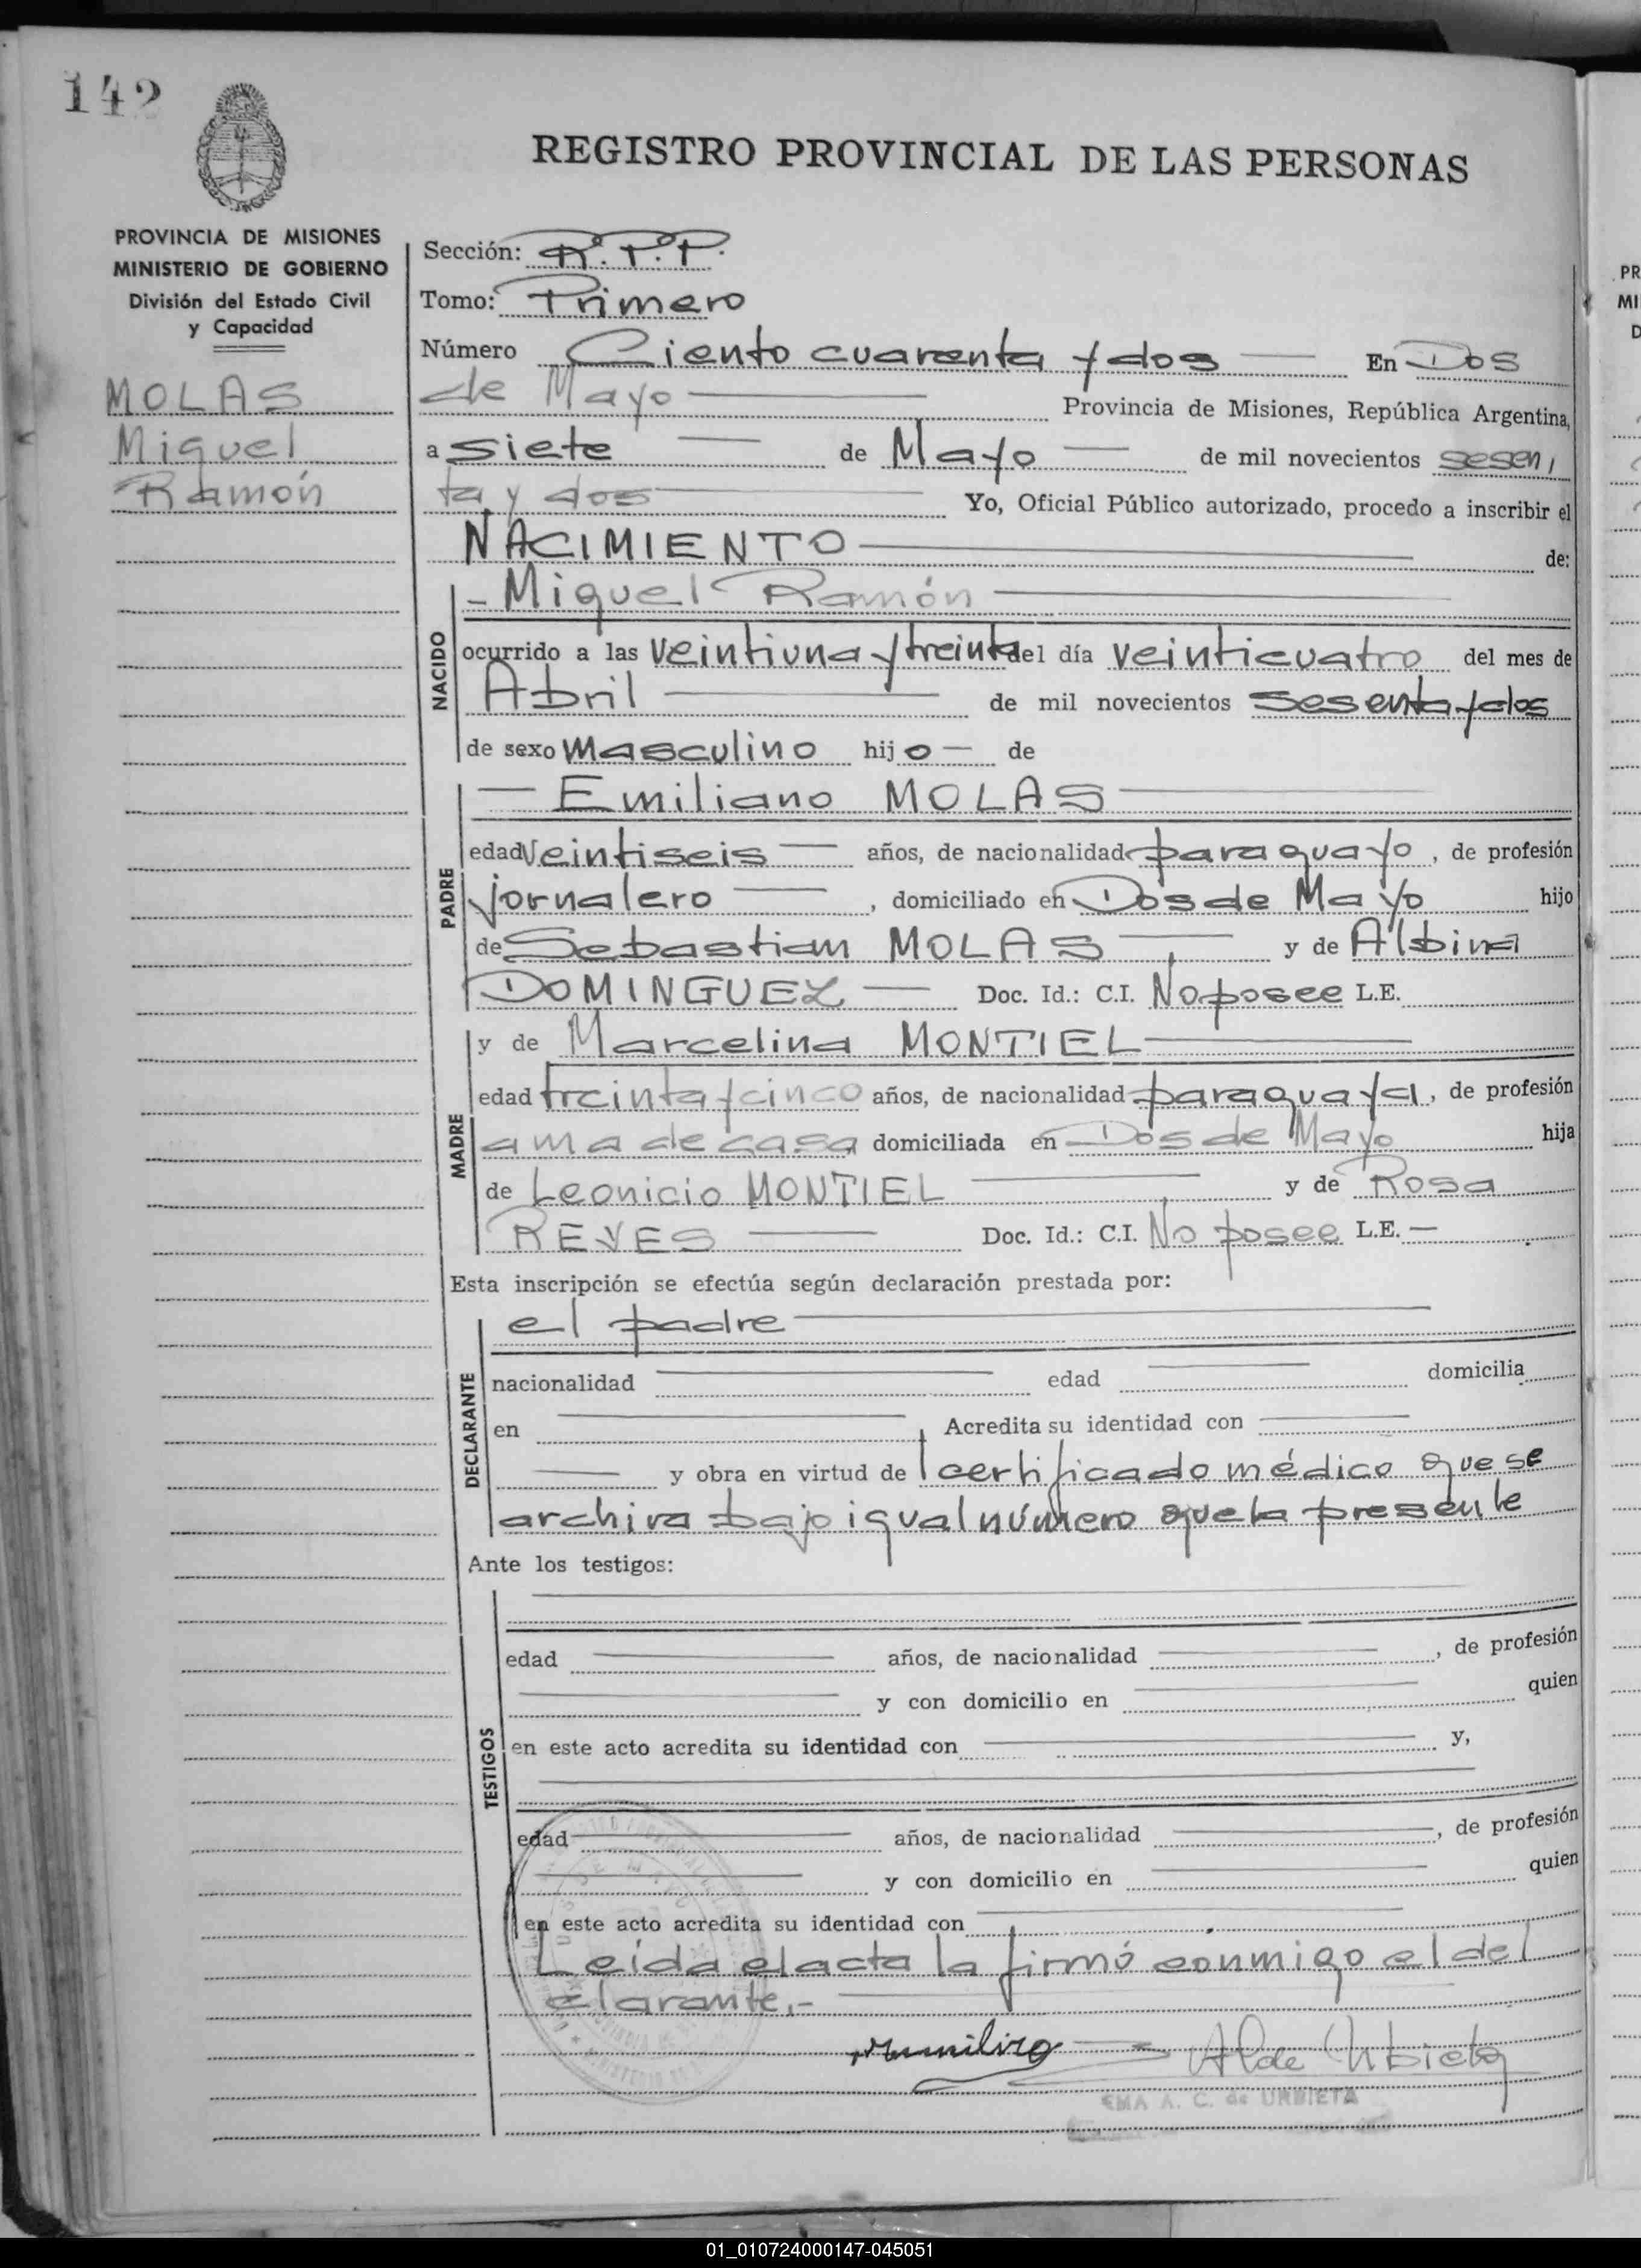 142
REGISTRO PROVINCIAL DE LAS PERSONAS
PROVINCIA DE MISIONES
MINISTERIO DE GOBIERNO
División del Estado Civil
y Capacidad
MOLAS
Miguel
Ramón
Sección: R.P.P.
Tomo: Primero
Número Ciento cuarenta y dos En Dos
de Mayo Provincia de Misiones, República Argentina,
a siete de Mayo de mil novecientos sesen
ta y dos Yo, Oficial Público autorizado, procedo a inscribir el
NACIMIENTO de:
NACIDO
- Miguel Ramón
ocurrido a las veintiuna y treinta del día veinticuatro del mes de
Abril de mil novecientos sesenta y dos
de sexo masculino hijo de
PADRE
Emiliano MOLAS
edad veintiseis años, de nacionalidad paraguayo, de profesión
jornalero, domiciliado en Dos de Mayo hijo
de Sebastian MOLAS y de Albina
DOMINGUEZ Doc. Id.: C.I. No posee L.E.
MADRE
y de Marcelina MONTIEL
edad treinta y cinco años, de nacionalidad paraguaya, de profesión
ama de casa domiciliada en Dos de Mayo hija
de Leonicio MONTIEL y de Rosa
REYES Doc. Id.: C.I. No posee L.E. —
Esta inscripción se efectúa según declaración prestada por:
DECLARANTE
el padre
nacionalidad edad domicilia
en Acredita su identidad con
y obra en virtud de certificado médico que se
archiva bajo igual número que la presente
Ante los testigos:
TESTIGOS
edad años, de nacionalidad , de profesión
y con domicilio en quien
en este acto acredita su identidad con y,
edad años, de nacionalidad , de profesión
y con domicilio en quien
en este acto acredita su identidad con
Leída el acta la firmó conmigo el del
clarante.-
A C de Urbieta
EMA A. C. de URBIETA
PR
MI
D
01_010724000147-045051